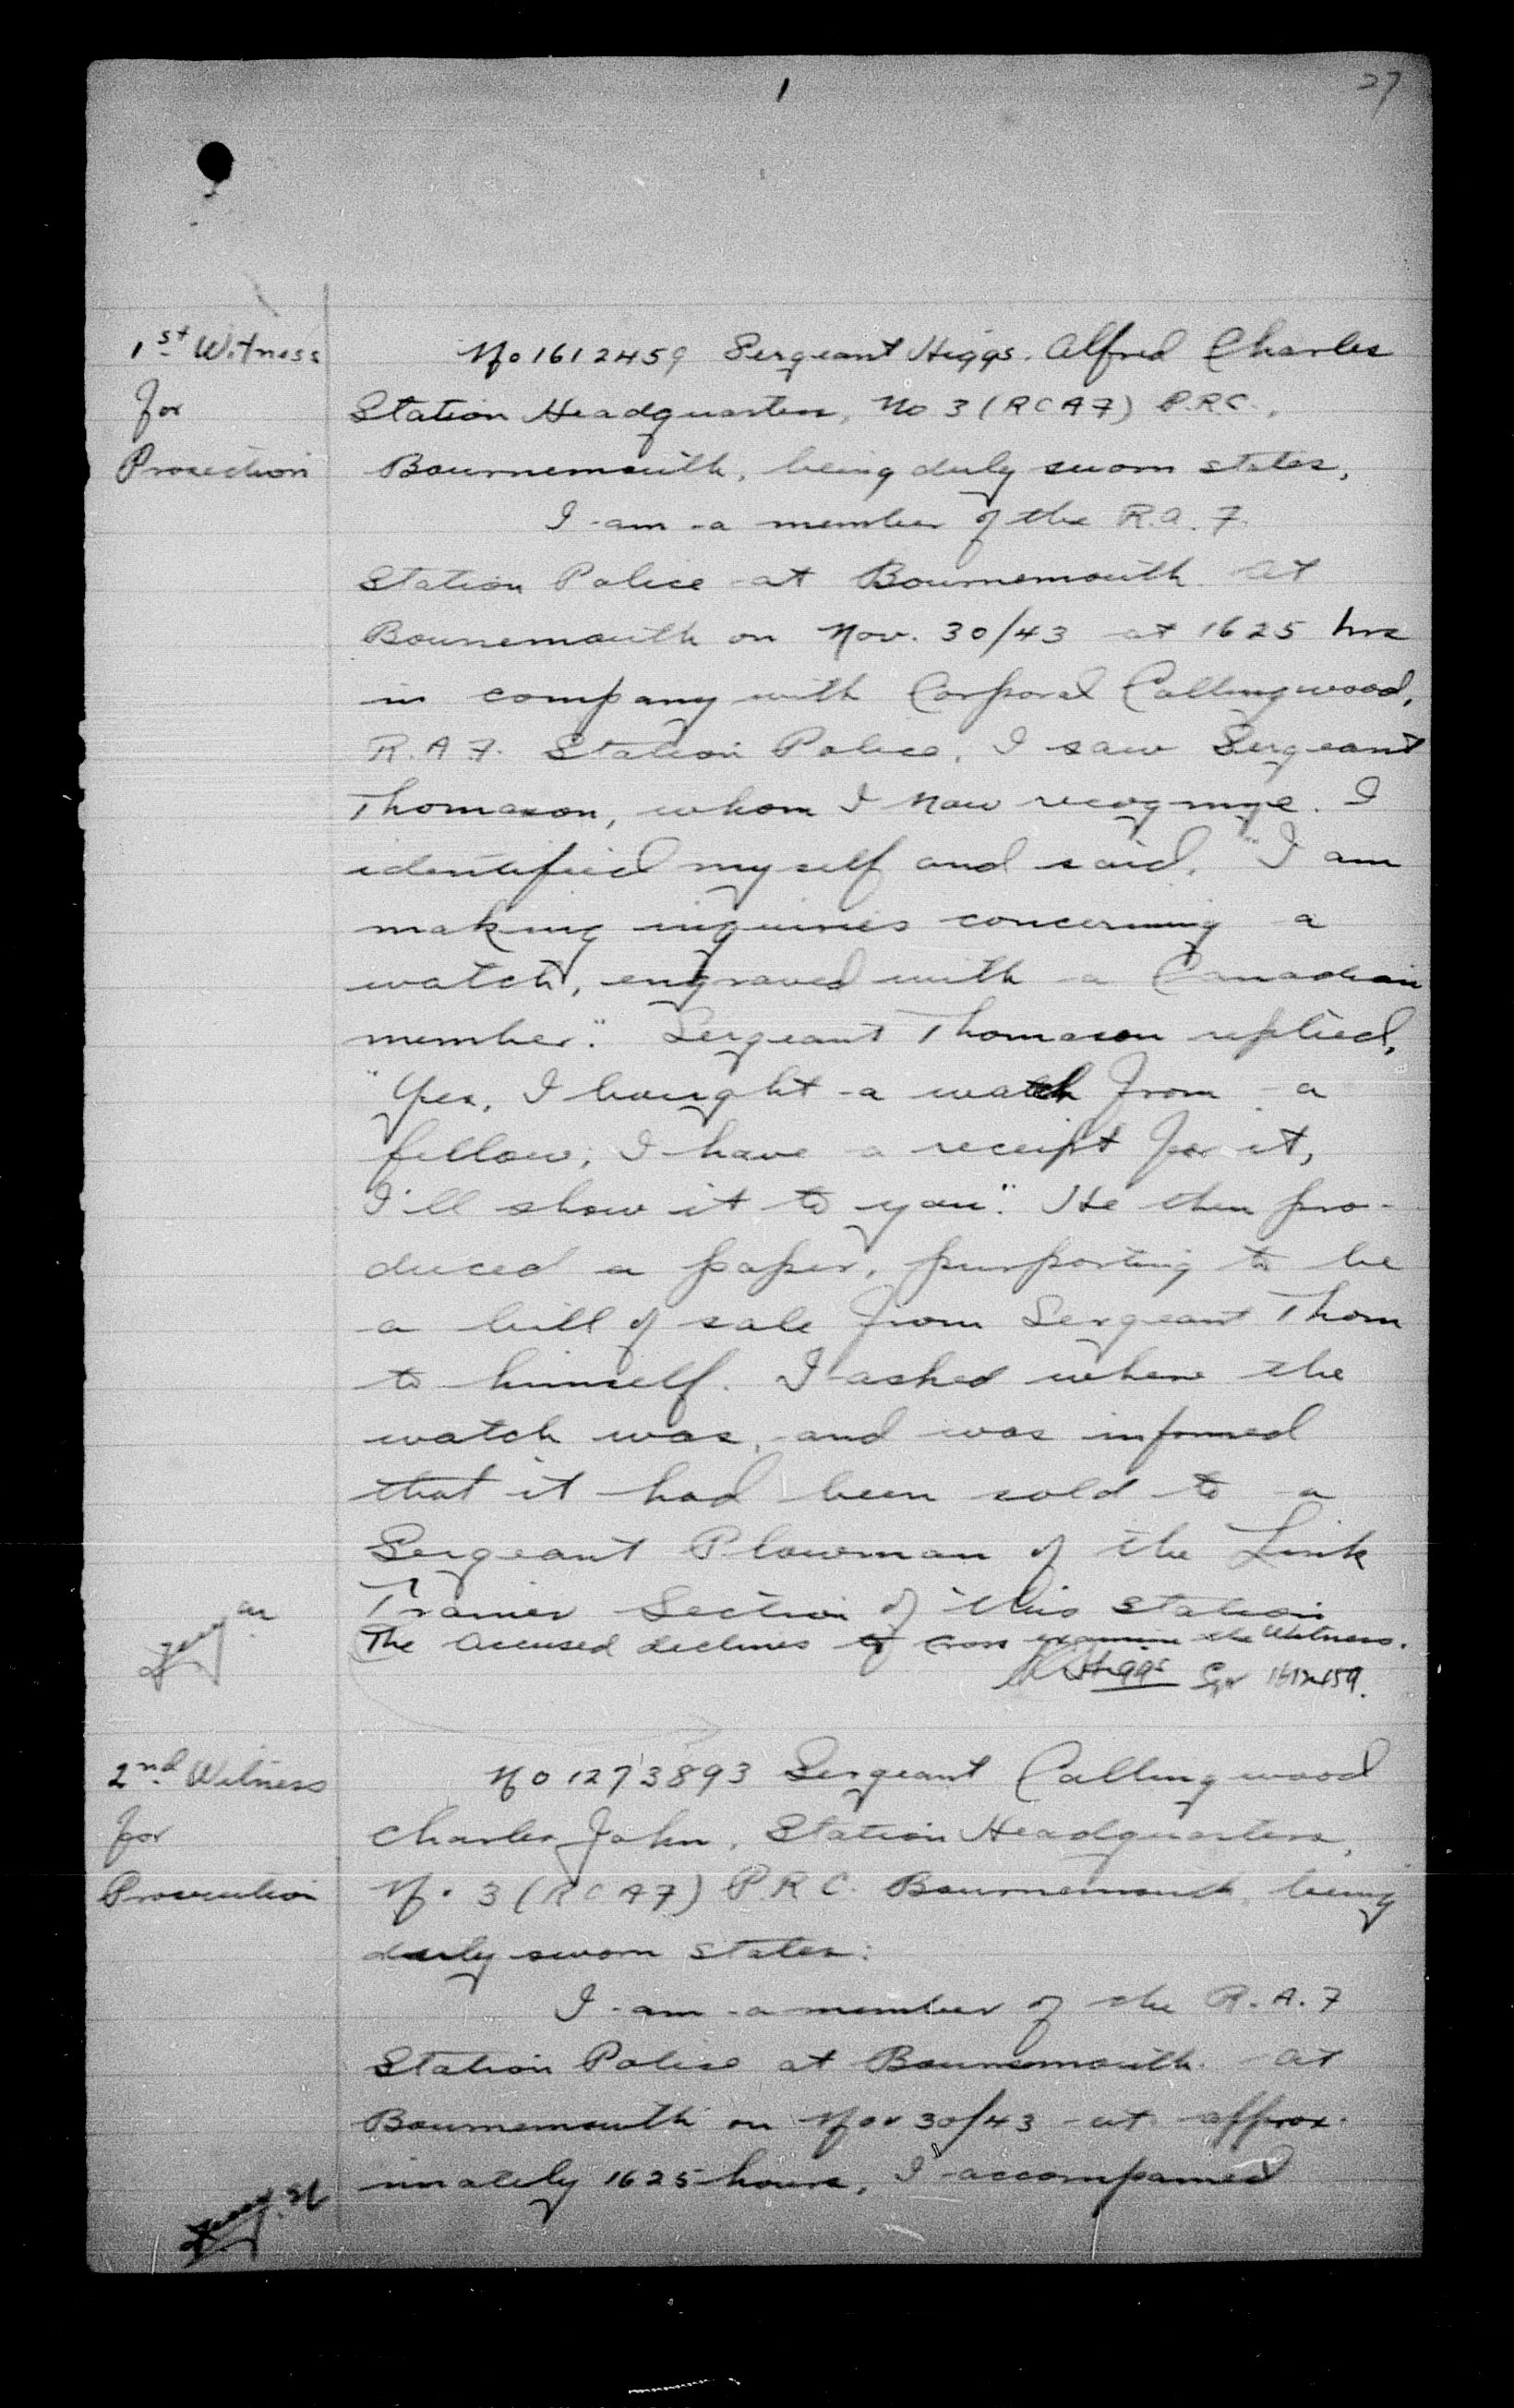 1
27
1st Witness
for
Prosecution
No 1612459 Sergeant Higgs. Alfred Charles
Station Headquarters, No 3 (RCAF) P.R.C.,
Bournemouth, being duly sworn states,
I am a member of the R.A.F.
Station Police at Bournemouth. At
Bournemouth on Nov. 30/43 at 1625 hrs
in company with Corporal Collingwood,
R.A.F. Station Police, I saw Sergeant
Thomason, whom I now recognize. I
identified myself and said, "I am
making inquiries concerning a
watch, engraved with a Canadian
member." Sergeant Thomason replied,
"Yes, I bought a watch from a
fellow, I have a receipt for it,
I'll show it to you." He then pro-
duced a paper, purporting to be
a bill of sale from Sergeant Thom
to himself. I asked where the
watch was, and was informed
that it had been sold to a
Sergeant Plowman of the Link
Trainer Section of this Station
The accused declines to cross examine the Witness.
Higgs Sgt 1612459.
2nd Witness
for
Prosecution
No 1273893 Sergeant Collingwood
Charles John, Station Headquarters,
No. 3 (RCAF) P.R.C. Bournemouth, being
duly sworn states:
I am a member of the R.A.F
Station Police at Bournemouth. At
Bournemouth on Nov 30/43 at approx-
imately 1625 hours, I accompanied